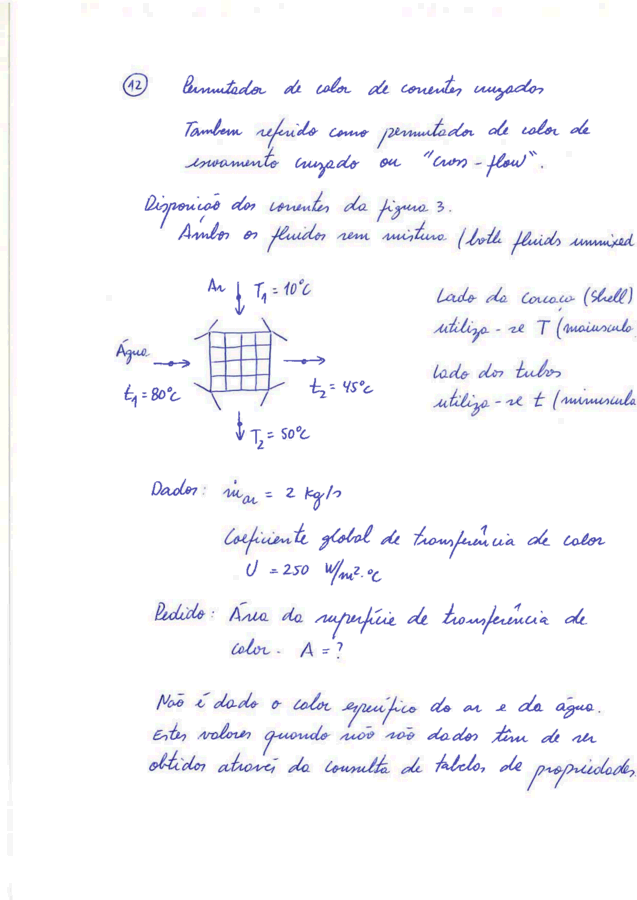 12 Permutador de calor de correntes cruzados
Tambem referido como permutador de calor de
escoamento cruzado ou "cross-flow".
Disposição dos correntes da figura 3.
Ambos os fluidos sem mistura (both fluids unmixed
Ar T1 = 10°C
Lado da carcaça (Shell)
utiliza-se T (maiúscula
Água
t1 = 80°C
t2 = 45°C
T2 = 50°C
Lado dos tubos
utiliza-se t (minuscula
Dados: ṁar = 2 kg/s
Coeficiente global de transferência de calor
U = 250 W/m².°C
Pedido: Área da superfície de transferência de
calor. A = ?
Não é dado o calor específico do ar e da água.
Estes valores quando não são dados têm de ser
obtidos através da consulta de tabelas de propriedades.